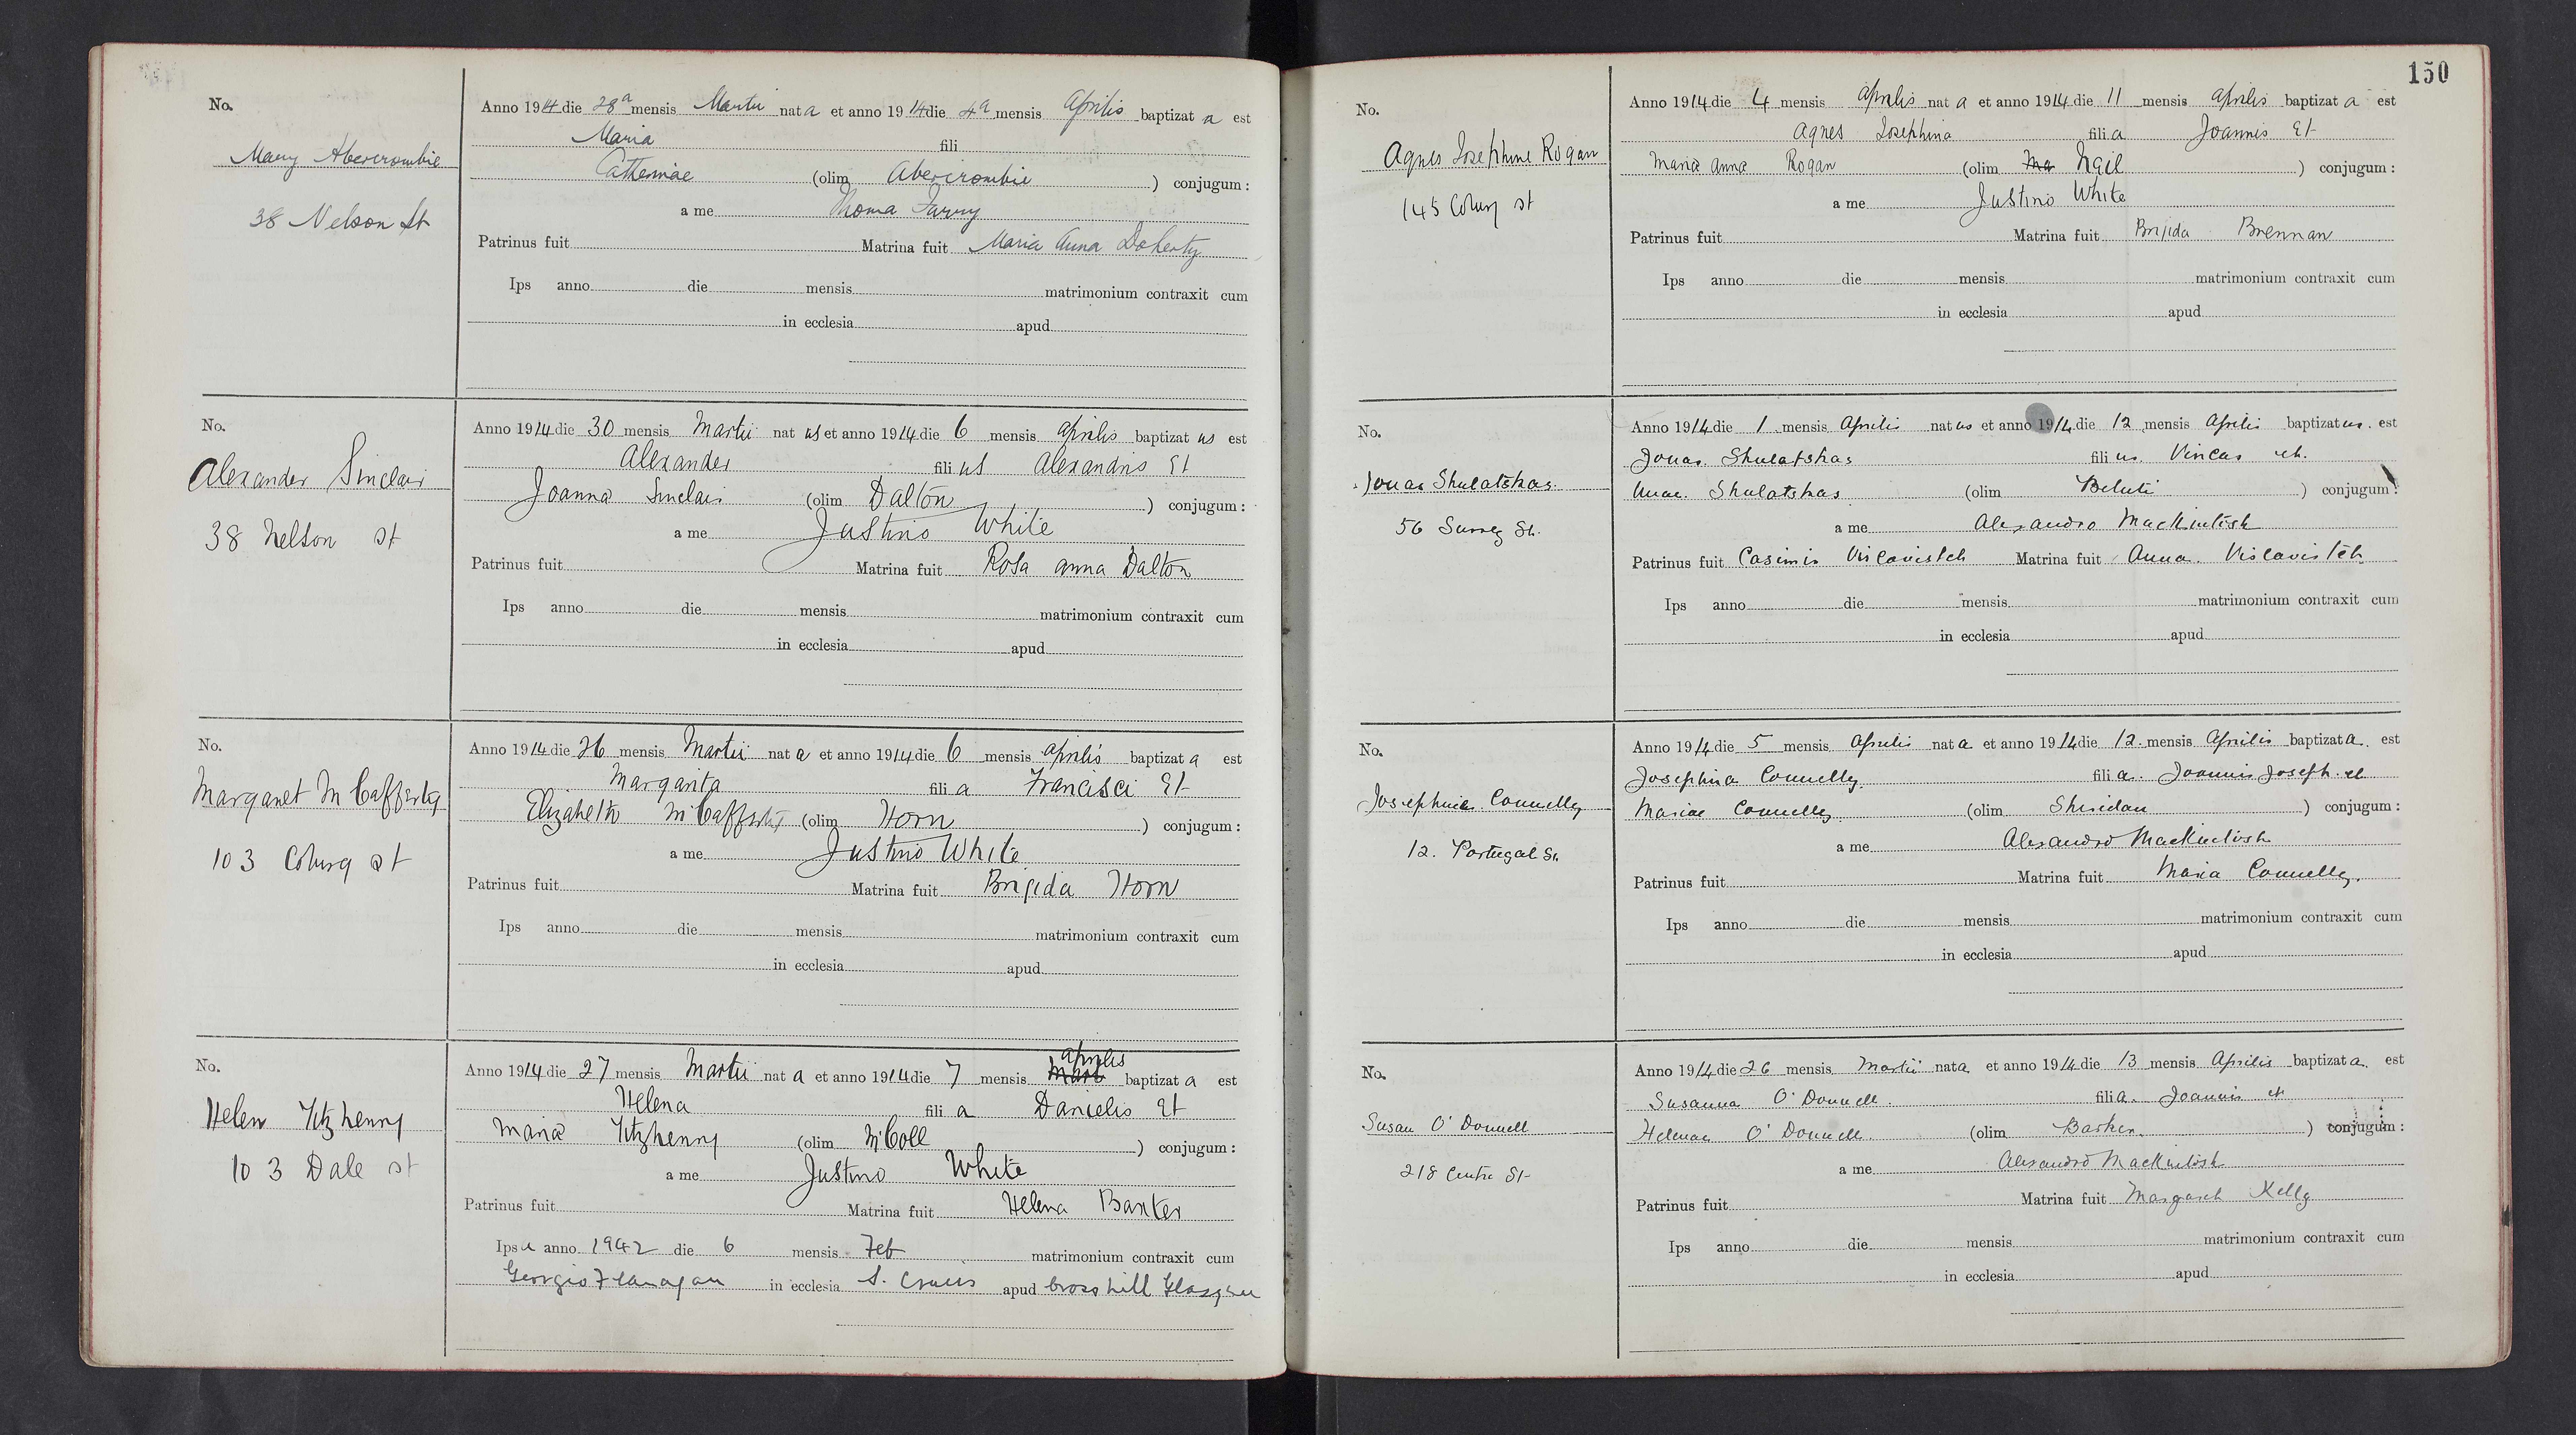 No.
Mary Abercrombie
38 Nelson St
Anno 1914 die 28a mensis Martii nata et anno 1914 die 4a mensis Aprilis baptizata est
Maria fili
Catherinae (olim Abercrombie) conjugum:
a me Thoma
Patrinus fuit Matrina fuit Maria Anna Doherty
Ips anno die mensis matrimonium contraxit cum
in ecclesia apud
No.
Alexander Sinclair
38 Nelson st
Anno 1914 die 30 mensis Martii natus et anno 1914 die 6 mensis Aprilis baptizatus est
Alexander filius Alexandris Et
Joanna Sinclair (olim Dalton) conjugum:
a me Justino White
Patrinus fuit Matrina fuit Rosa anna Dalton
Ips anno die mensis matrimonium contraxit cum
in ecclesia apud
No.
Margaret McCafferty
103 Coburg st
Anno 1914 die 26 mensis Martii nata et anno 1914 die 6 mensis Aprilis baptizata est
Margarita filia Francisci Et
Elizabeth McCafferty (olim Horn) conjugum:
a me Justino White
Patrinus fuit Matrina fuit Brigida Horn
Ips anno die mensis matrimonium contraxit cum
in ecclesia apud
No.
Helen Fitzhenry
103 Dale st
Anno 1914 die 27 mensis Martii nata et anno 1914 die 7 mensis Mart Aprilis baptizata est
Helena filia Danielis Et
Maria Fitzhenry (olim McColl) conjugum:
a me Justino White
Patrinus fuit Matrina fuit Helena Baxter
Ipsa anno 1942 die 6 mensis Feb matrimonium contraxit cum
Georgio Flanagan in ecclesia S. Crucis apud Crosshill Glasgow
150
No.
Agnes Josephine Rogan
145 Coburg st
Anno 1914 die 4 mensis Aprilis nata et anno 1914 die 11 mensis Aprilis baptizata est
Agnes Josephina filia Joannis Et
Maria Anna Rogan (olim Ma Neil) conjugum:
a me Justino White
Patrinus fuit Matrina fuit Brigida Brennan
Ips anno die mensis matrimonium contraxit cum
in ecclesia apud
No.
Jonas Shulatskas.
56 Surrey St.
Anno 1914 die 1 mensis Aprilis natus et anno 1914 die 12 mensis Aprilis baptizatus. est
Jonas Shulatskas filius. Vincas et.
Annae. Shulatskas (olim Beluti) conjugum:
a me Alexandro Mackintosh
Patrinus fuit Casimir Vislavistch Matrina fuit Anna. Vislavistch
Ips anno die mensis matrimonium contraxit cum
in ecclesia apud
No.
Josephine Connelly
12. Portugal St.
Anno 1914 die 5 mensis Aprilis nata et anno 1914 die 12. mensis Aprilis baptizata. est
Josephina Connelly filia. Joannis Joseph. et
Mariae Connelly. (olim Sheridan) conjugum:
a me Alexandro Mackintosh
Patrinus fuit Matrina fuit Maria Connelly.
Ips anno die mensis matrimonium contraxit cum
in ecclesia apud
No.
Susan O'Donnell
218 Centre St
Anno 1914 die 26 mensis Martii nata et anno 1914 die 13 mensis Aprilis baptizata. est
Susanna O'Donnell. filia. Joannis et
Helenae O'Donnell. (olim Barker.) conjugum:
a me Alexandro Mackintosh
Patrinus fuit Matrina fuit Margaret Kelly
Ips anno die mensis matrimonium contraxit cum
in ecclesia apud